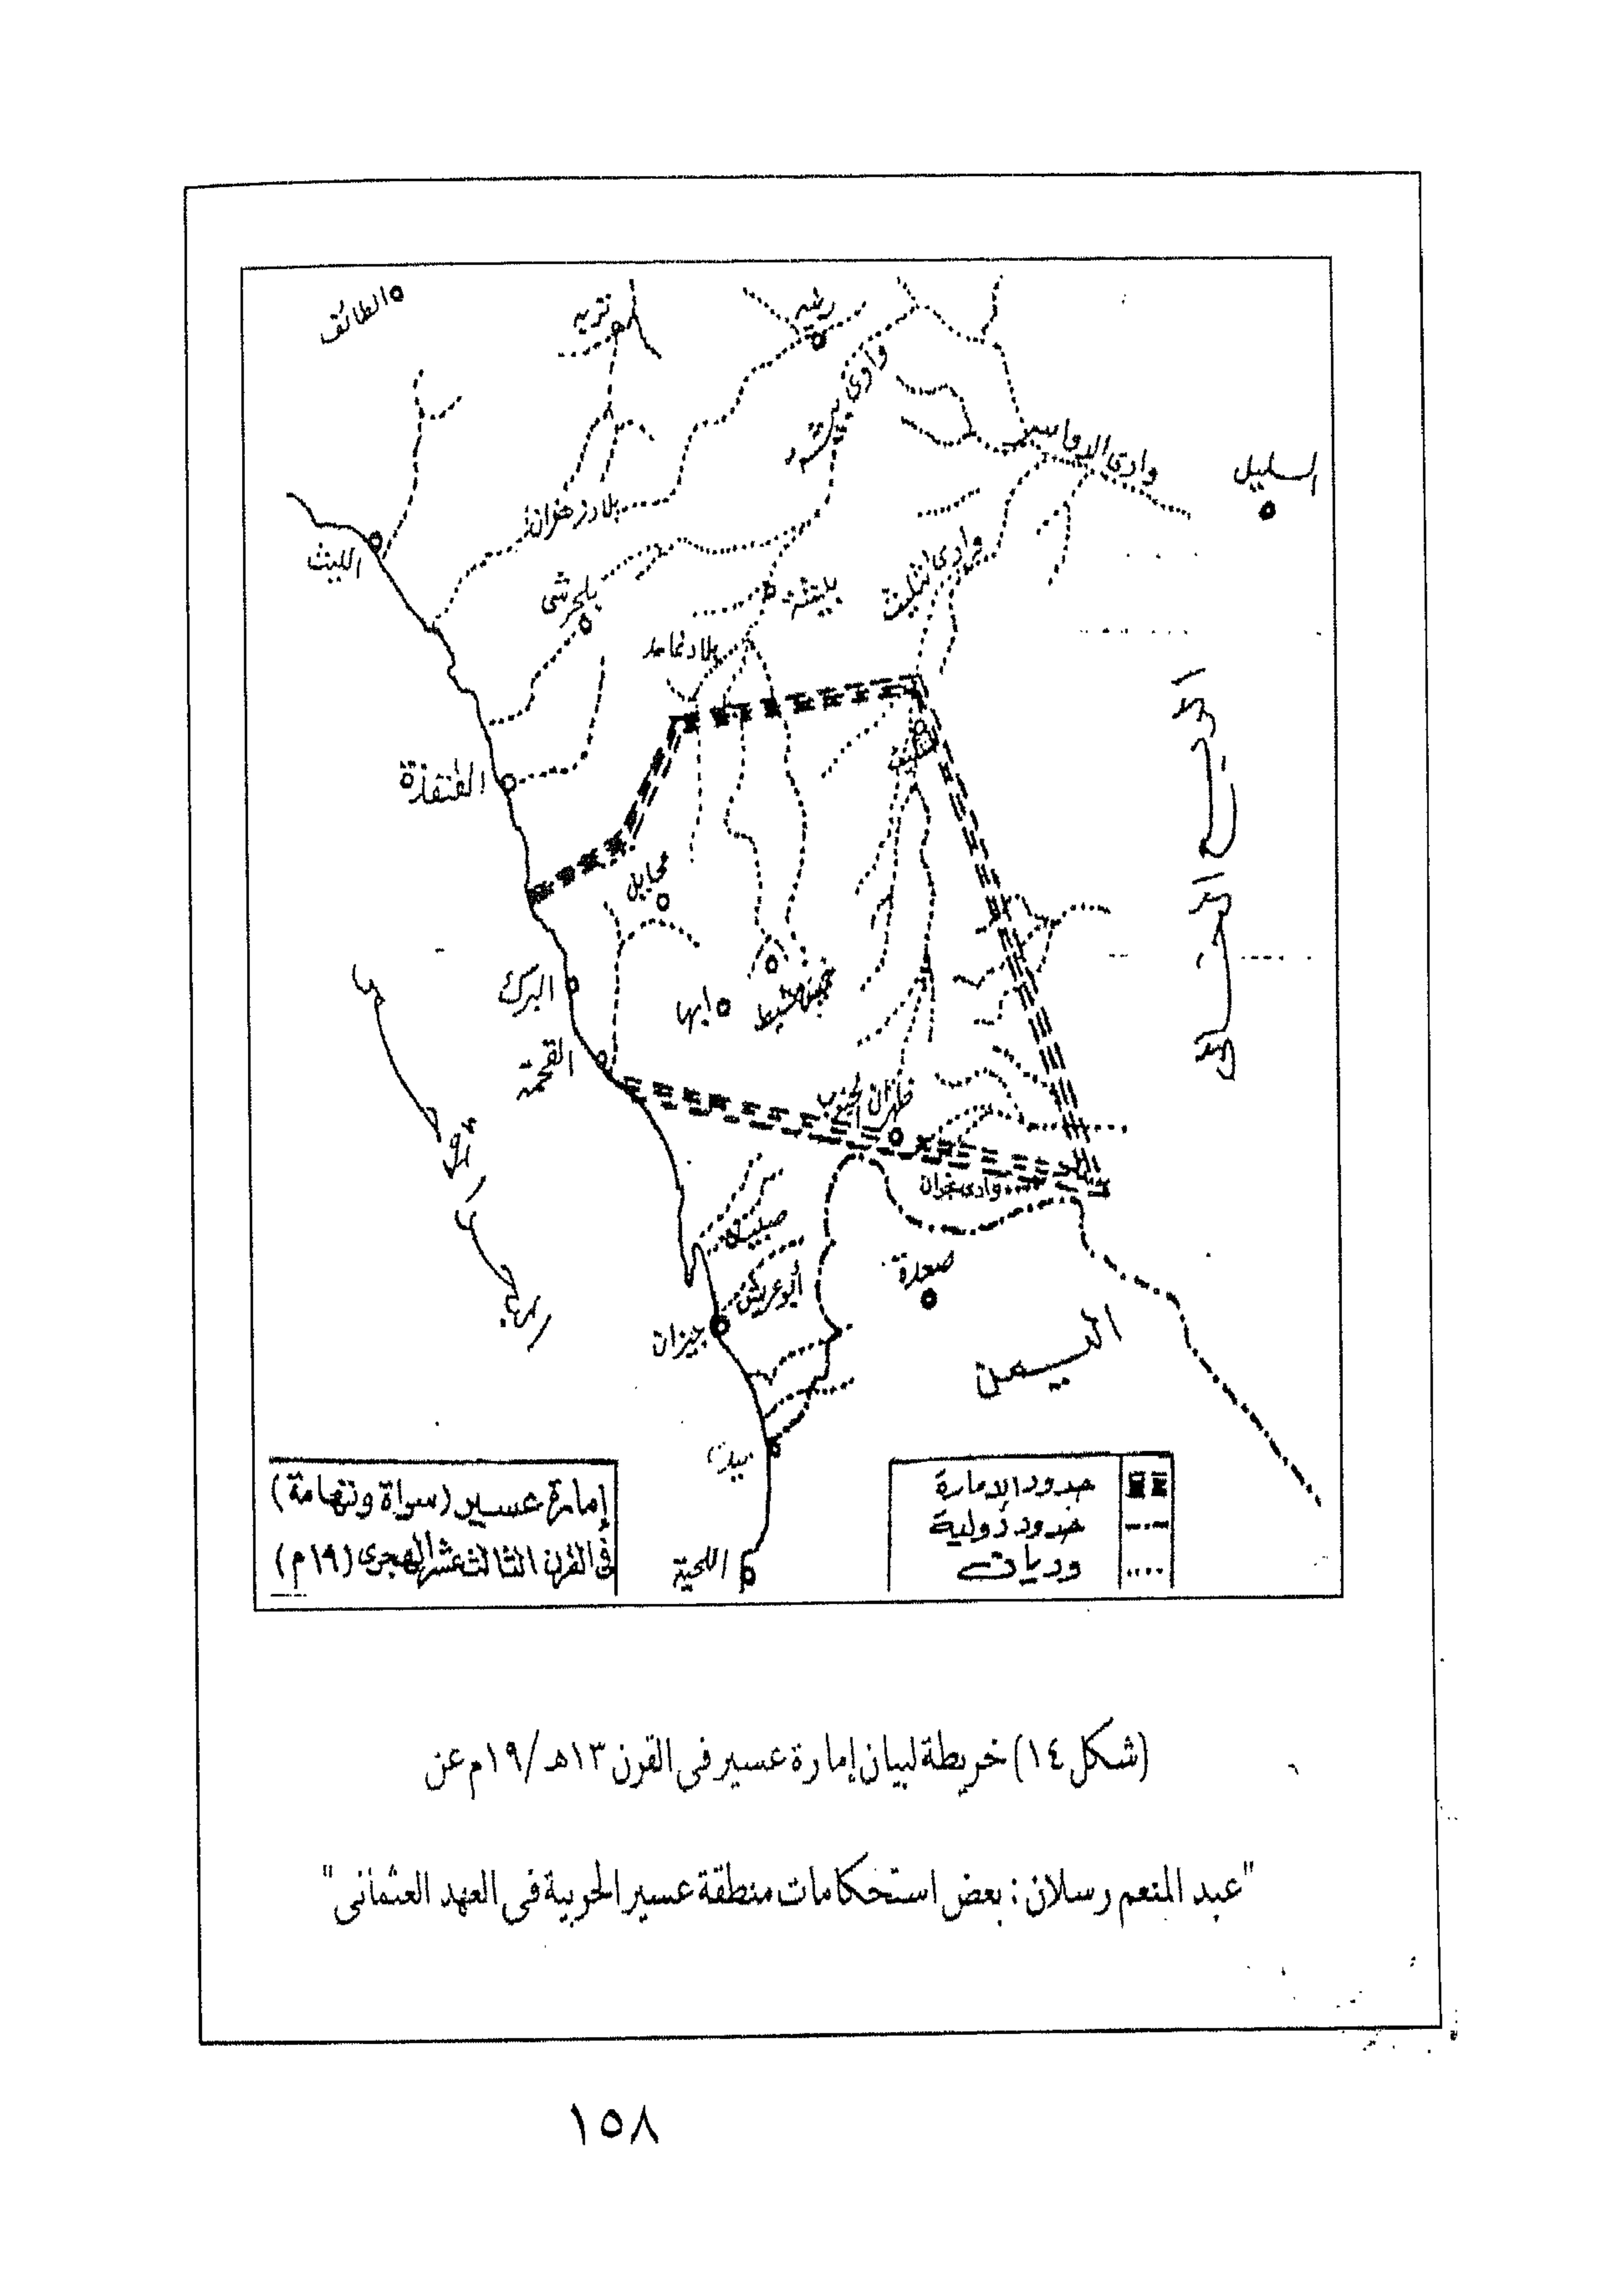 الطائف
تربه
رنيه
وادى بيشه
وادى الدواسر
السليل
بلاد زهران
الليث
بلجرشى
بيشة
وادى تثليث
بلاد غامد
تثليث
القنفذة
محايل
البرك
ابها
خميس مشيط
القحمة
ظهران الجنوب
وادى نجران
البحر الأحمر
صبيا
أبوعريش
جيزان
صعدة
اليمن
ميدى
اللحية
إمارة عسير (سراة وتهامة)
فى القرن الثالث عشر الهجرى (١٩م)
حدود الإمارة
حدود دولية
وديان
(شكل ١٤) خريطة لبيان إمارة عسير فى القرن ١٣هـ/١٩م عن
"عبد المنعم رسلان : بعض استحكامات منطقة عسير الحربية فى العهد العثمانى"
١٥٨